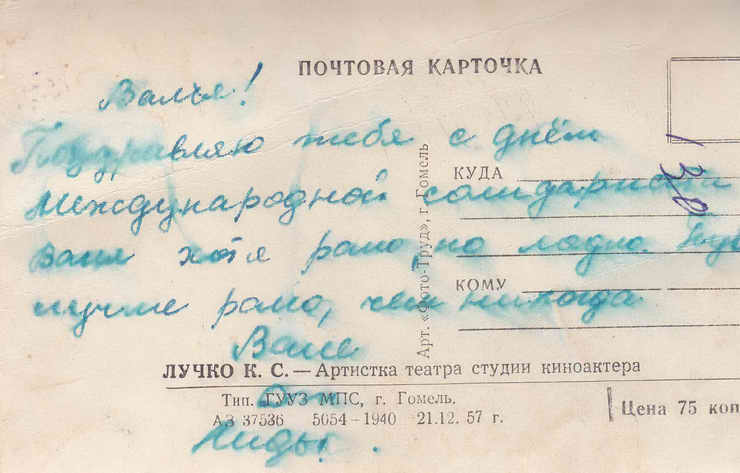 ПОЧТОВАЯ КАРТОЧКА
Валя!
Поздравляю тебя с днём
Международной солидарности
Валя хотя рано, но ладно.
лучше рано, чем никогда
Вале
От
Лиды.
КУДА
КОМУ
Арт. «Фото-Труд», г. Гомель
ЛУЧКО К. С. — Артистка театра студии киноактера
Тип. ГУУЗ МПС, г. Гомель.
АЗ 37536 5054—1940 21.12. 57 г.
Цена 75 коп